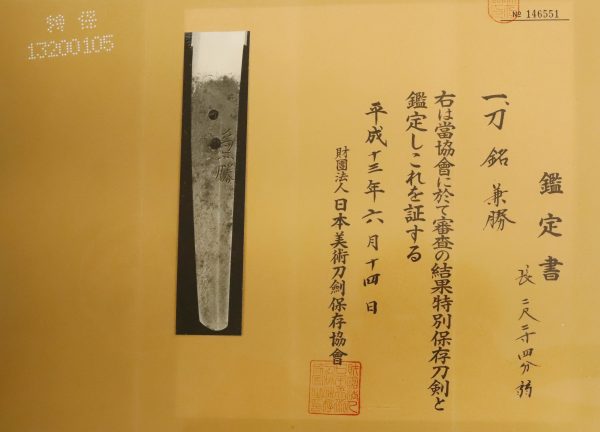 鑑定書
一、刀 銘 兼勝
長 二尺二寸四分弱
右は當協會に於て審査の結果特別保存刀剣と
鑑定しこれを証する
平成十三年六月十四日
財團法人 日本美術刀劍保存協會
№ 146551
特保
13200105
兼勝